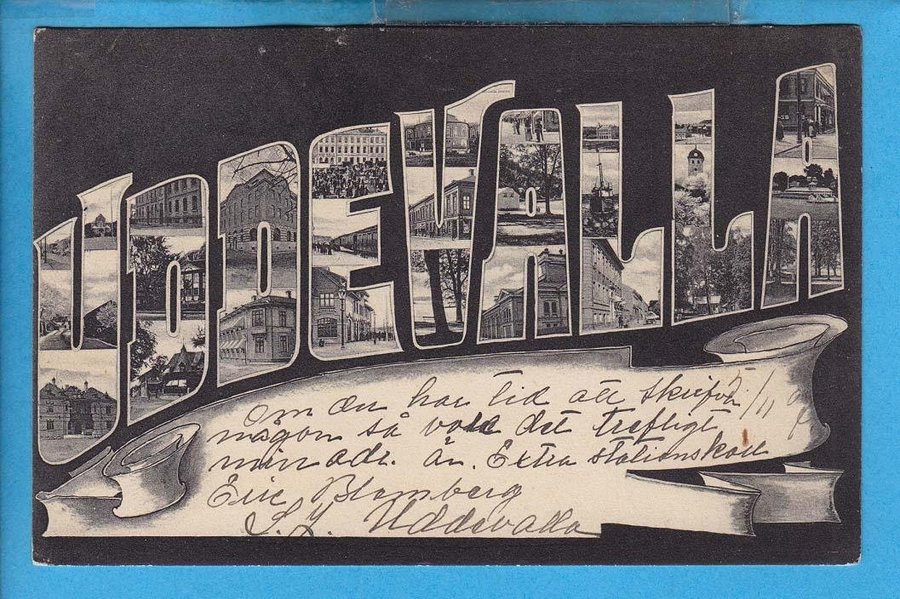 UDDEVALLA
Om du har tid att skrifva
någon så vore det trefligt
min adr. är. Extra stationskarl
Eric Blomberg
S. J. Uddevalla